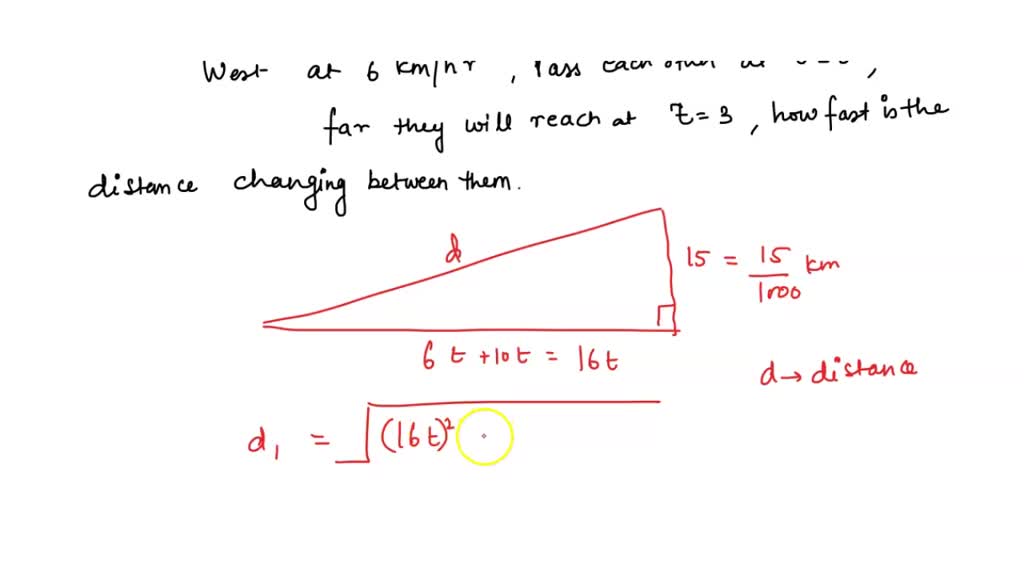 West at 6 km/hr, Pass each other at
far they will reach at t=3, how fast is the
distance changing between them.
d
15 = 15/1000 km
6t + 10t = 16t
d → distance
d₁ = √(16t)²